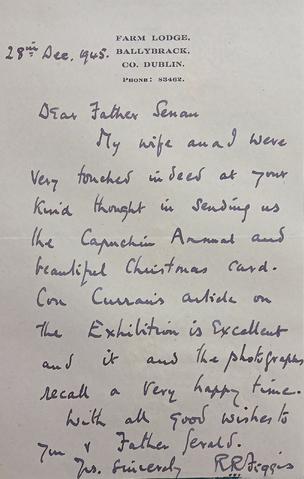 FARM LODGE,
28th Dec. 1945. BALLYBRACK,
CO. DUBLIN.
PHONE: 83462.
Dear Father Senan
My wife and I were
very touched indeed at your
kind thought in sending us
the Capuchin Annual and
beautiful Christmas card.
Con Curran's article on
the Exhibition is Excellent
and it and the photographs
recall a very happy time.
With all good wishes to
you & Father Gerald.
Yrs. Sincerely R.R. Figgis